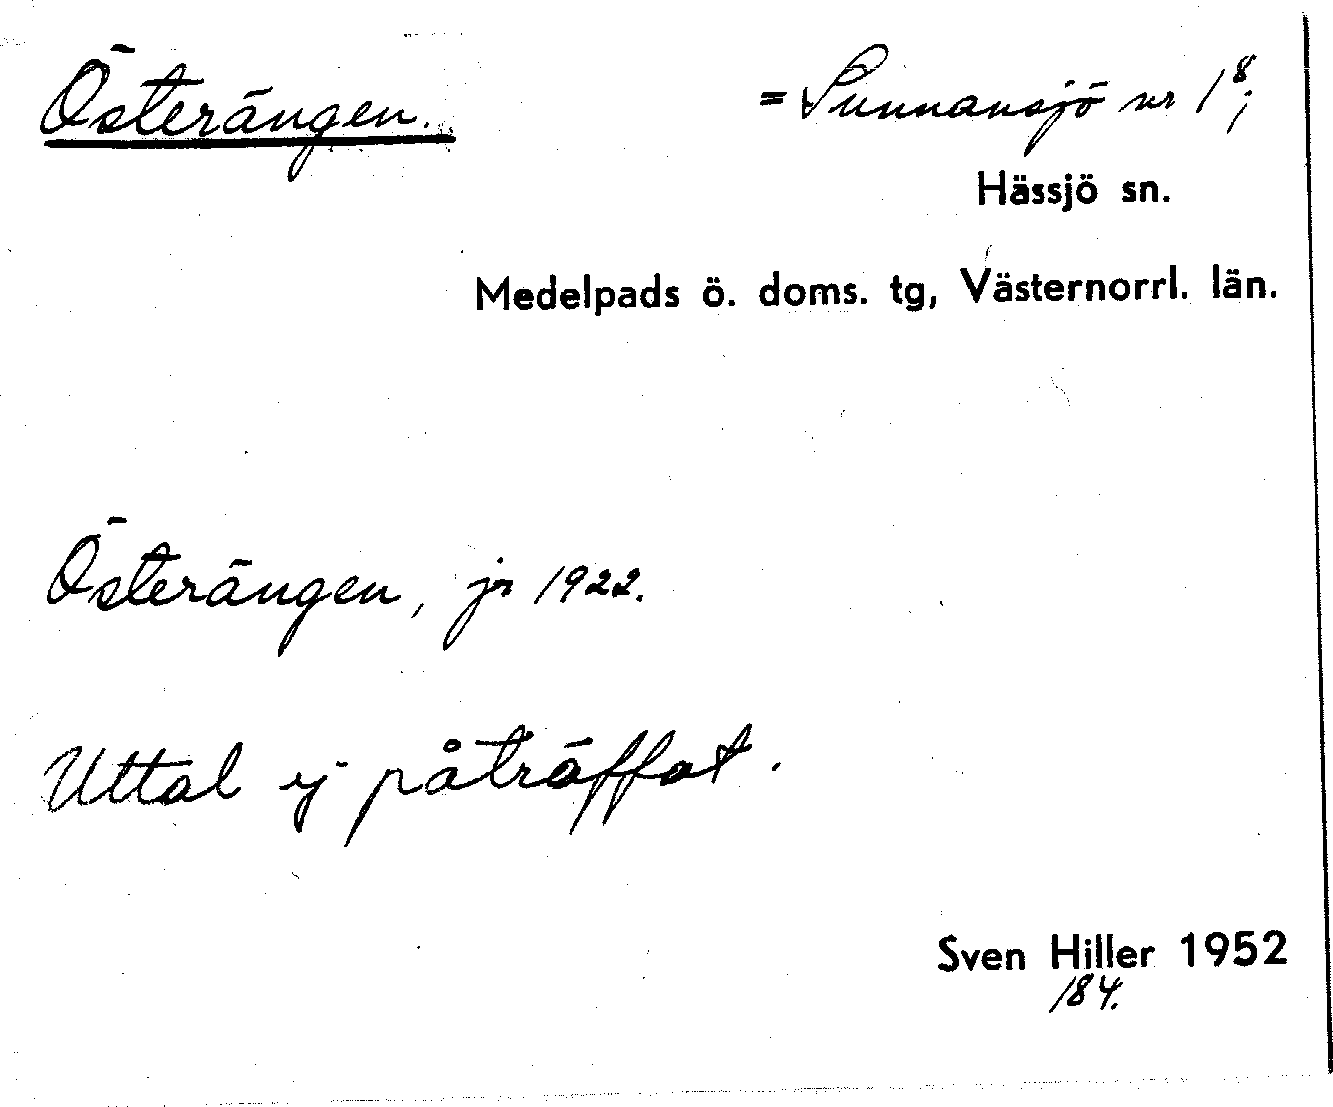 Österängen. = Sunnansjö nr 1⁸;
Hässjö sn.
Medelpads ö. doms. tg, Västernorrl. län.
Österängen, jr 1922.
Uttal ej påträffat.
Sven Hiller 1952
184.